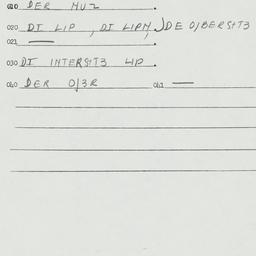 010 DER MUZ .
020 DI LIP , DI LIPN , DE O/BERSHT3
021 — .
030 DI INTERSHT3 LIP .
060 DER O/3R 061 —